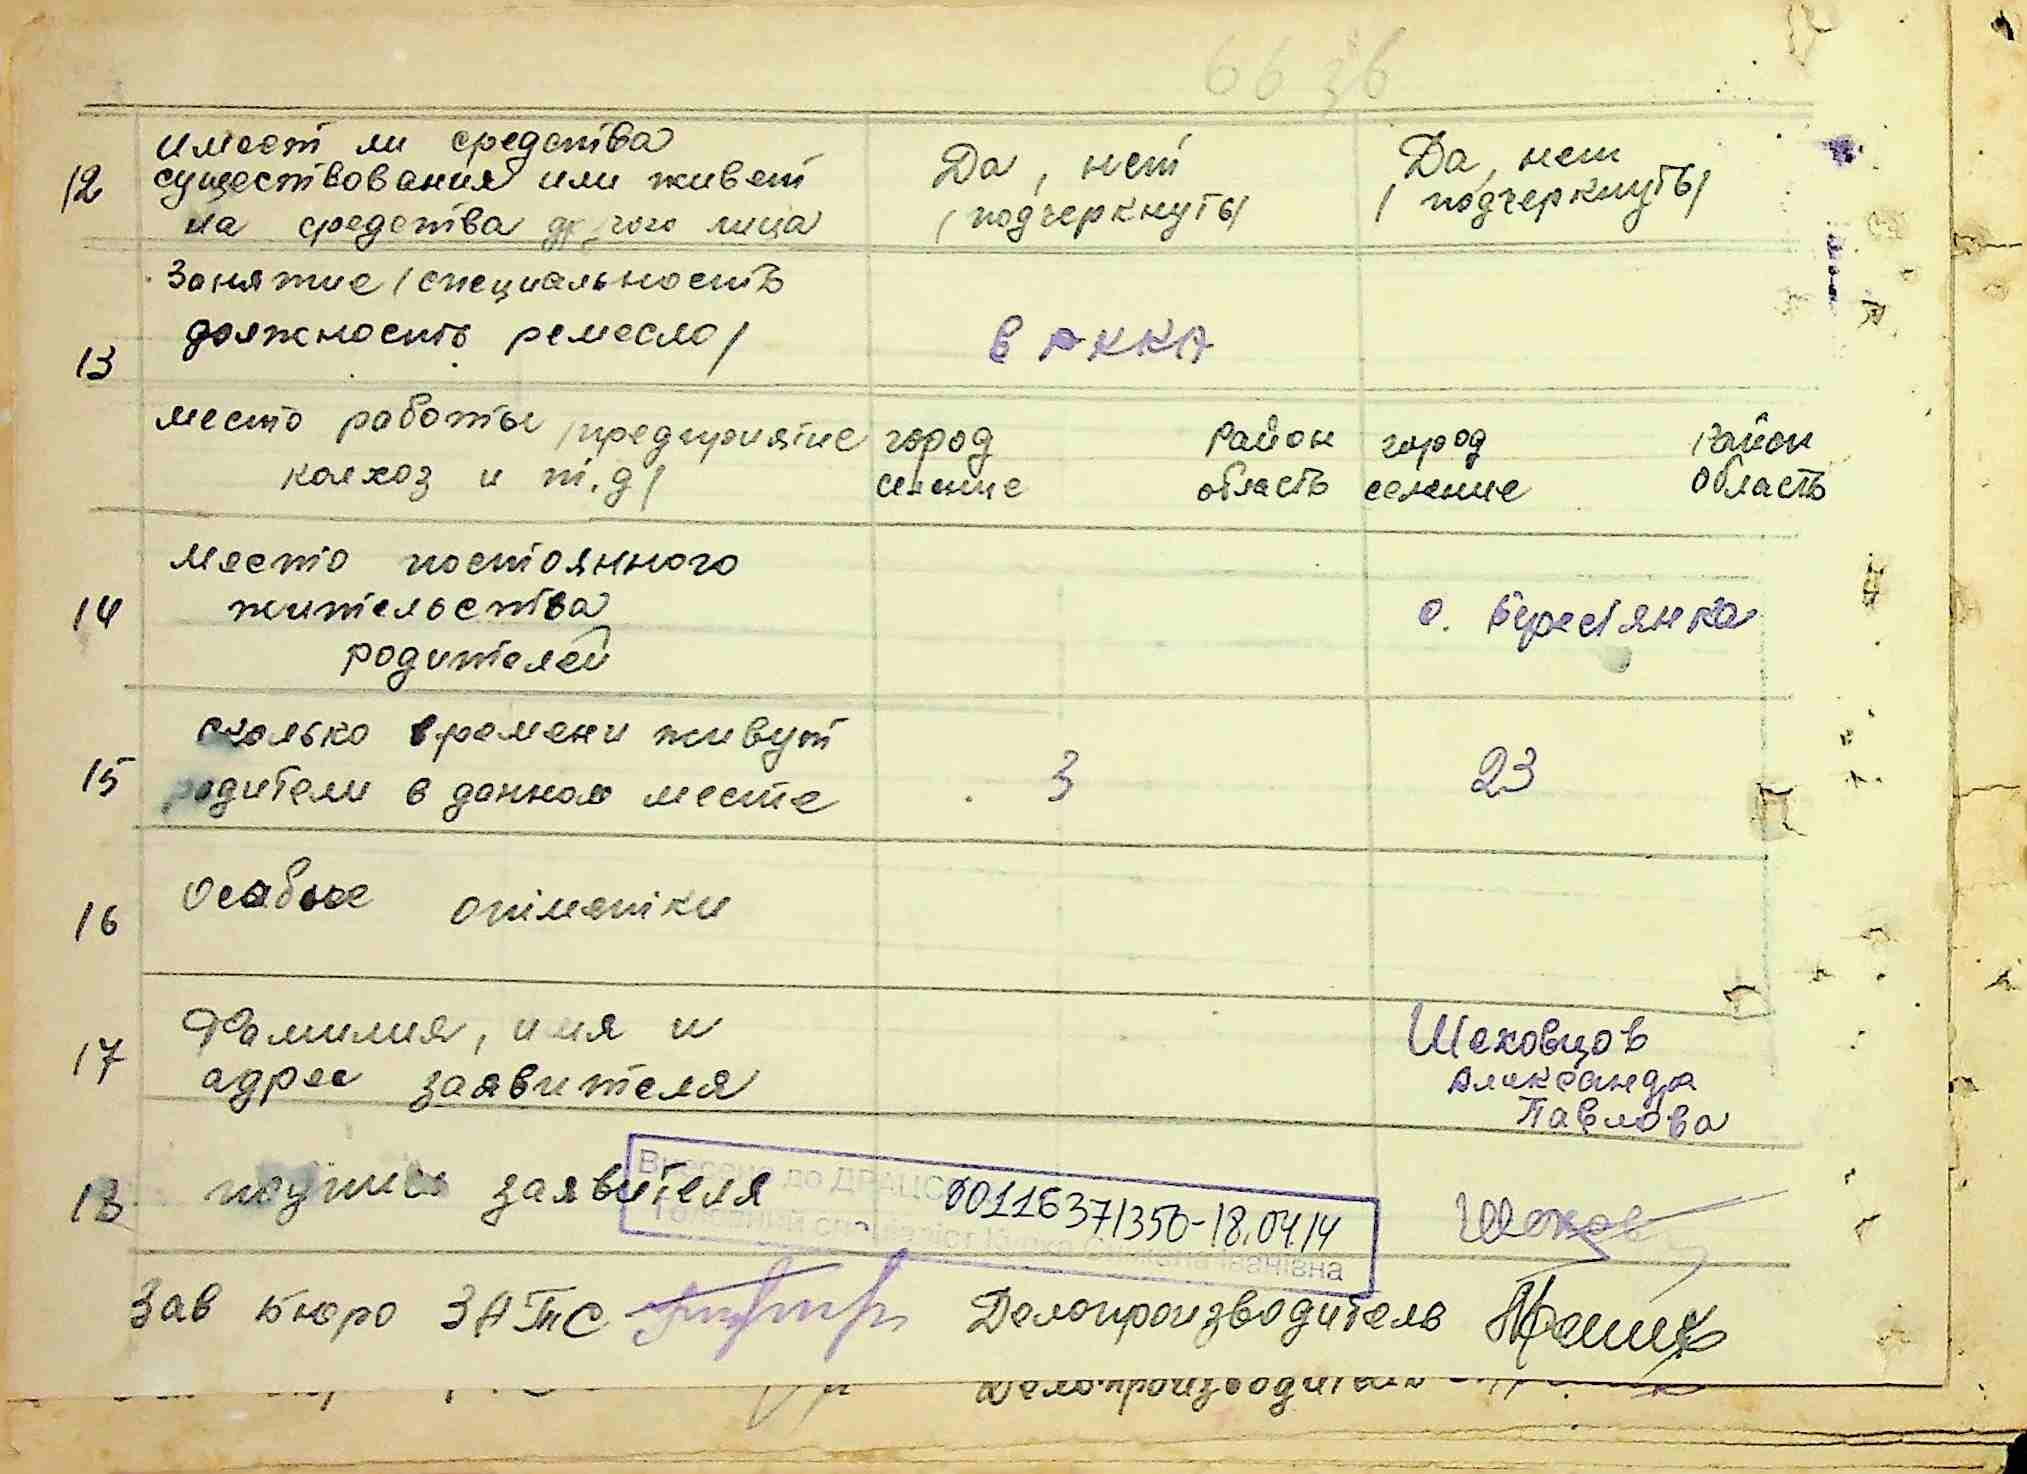 66 зв
12 имеет ли средства Да, нет Да, нет
существования или живет /подчеркнуть/ /подчеркнуть/
на средства другого лица
Занятие /специальность
должность ремесло/ в РККА
13
место работы /предприятие город район город район
колхоз и т.д/ селение область селение область
Место постоянного
14 жительства с. Берестянка
родителей
сколько времени живут
15 родители в данном месте 3 23
16 Особые отметки
17 Фамилия, имя и Шеховцов
адрес заявителя Александра
Павлова
Внесено до ДРАЦС
18 подпись заявителя 00011637135 - 18.04.14 Шехов
Головний спеціаліст Оксана Іванівна
Зав бюро ЗАГС Делопроизводитель
Делопроизводитель